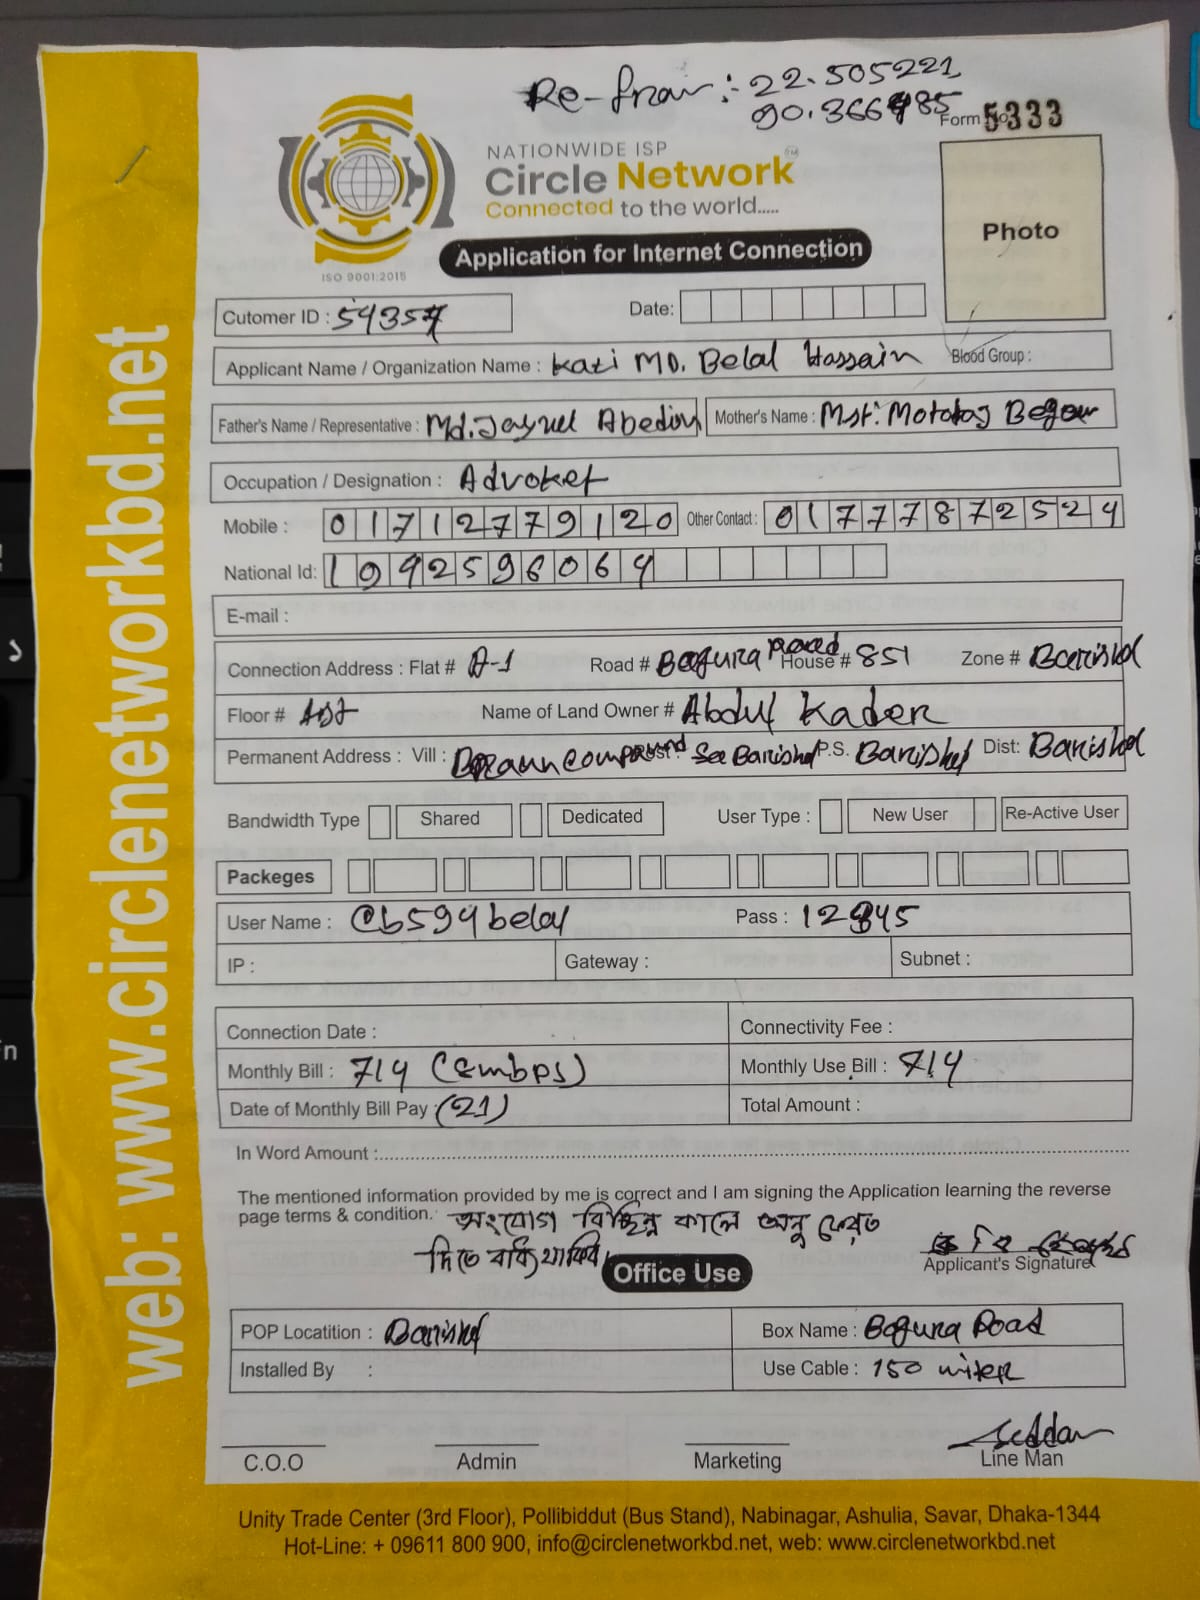 Re-fran :- 22.505221
90.366485
Form No 5333
NATIONWIDE ISP
Circle Network TM
Connected to the world.....
ISO 9001:2015
Application for Internet Connection
Photo
Cutomer ID : 54357
Date:
Applicant Name / Organization Name : Kazi MD. Belal Hossain Blood Group :
Father's Name / Representative : Md. Jaynul Abedin Mother's Name : Mst: Begom
Occupation / Designation : Advoket
Mobile : 01712779120 Other Contact : 01777872524
National Id: 1942596064
E-mail :
Connection Address : Flat # A-1 Road # Bogura Roaed House # 851 Zone # Barishal
Floor # 1st Name of Land Owner # Abdul Kader
Permanent Address : Vill : Braun Compound Barishal P.S. Barishal Dist: Barishal
Bandwidth Type Shared Dedicated User Type : New User Re-Active User
Packeges
User Name : @b594belal Pass : 12345
IP : Gateway : Subnet :
Connection Date : Connectivity Fee :
Monthly Bill : 714 (8mbps) Monthly Use Bill : 714
Date of Monthly Bill Pay : (21) Total Amount :
In Word Amount :
The mentioned information provided by me is correct and I am signing the Application learning the reverse
page terms & condition. সংযোগ বিচ্ছিন্ন কালে অনু ফেরত
দিতে বাধ্য থাকিব
Applicant's Signature
Office Use
POP Locatition : Barishal Box Name : Bogura Road
Installed By : Use Cable : 150 miter
Seddam
C.O.O Admin Marketing Line Man
Unity Trade Center (3rd Floor), Pollibiddut (Bus Stand), Nabinagar, Ashulia, Savar, Dhaka-1344
Hot-Line: + 09611 800 900, info@circlenetworkbd.net, web: www.circlenetworkbd.net
web: www.circlenetworkbd.net